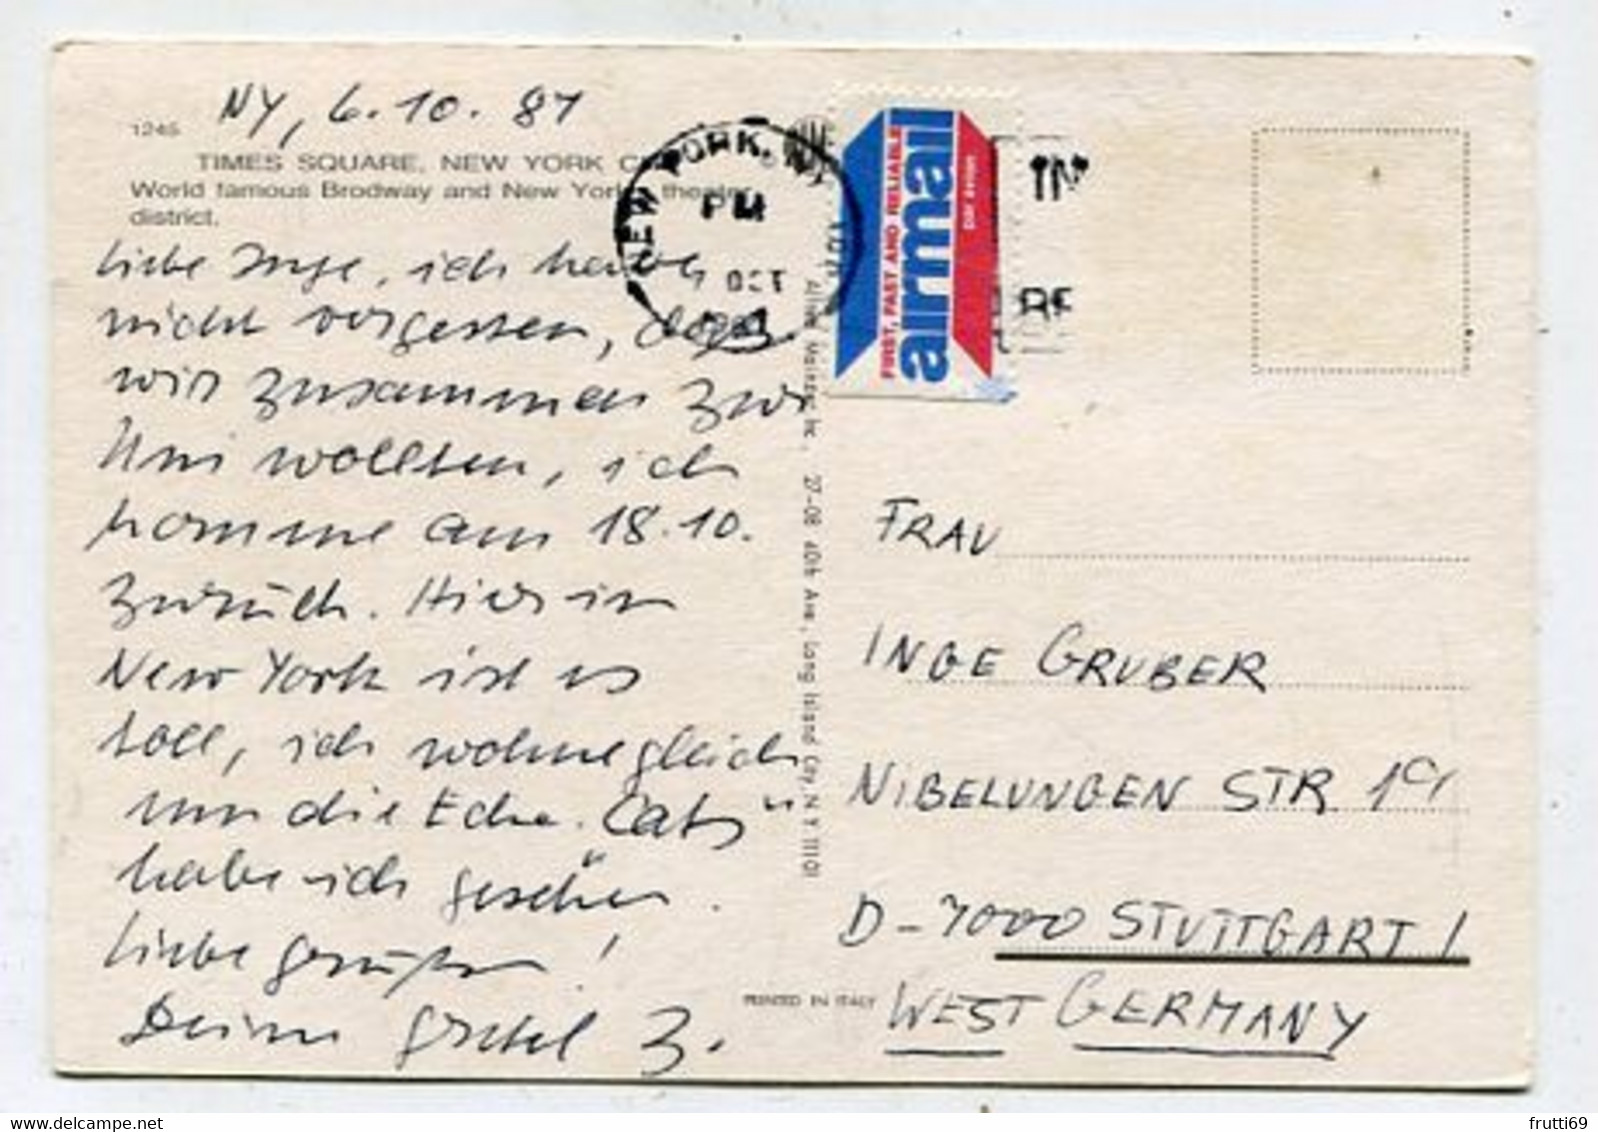 NY, 6.10.87
1245
TIMES SQUARE, NEW YORK
World famous Brodway and New York theater
district.
Liebe Inge, ich habe
nicht vergessen, dass
wir zusammen zur
Uni wollten, ich
komme am 18.10.
zurück. Hier in
New York ist es
toll, ich wohne gleich
um die Ecke. "Cats"
habe ich gesehen.
Liebe Grüße!
Deine Gretel Z.
NEW YORK, NY
PM
OCT
FIRST, FAST AND RELIABLE
airmail
Alfred Mainzer, Inc., 27-08 40th Ave., Long Island City, N.Y. 11101
PRINTED IN ITALY
FRAU
INGE GRUBER
NIBELUNGEN STR 19
D-7000 STUTTGART 1
WEST GERMANY
frutti69